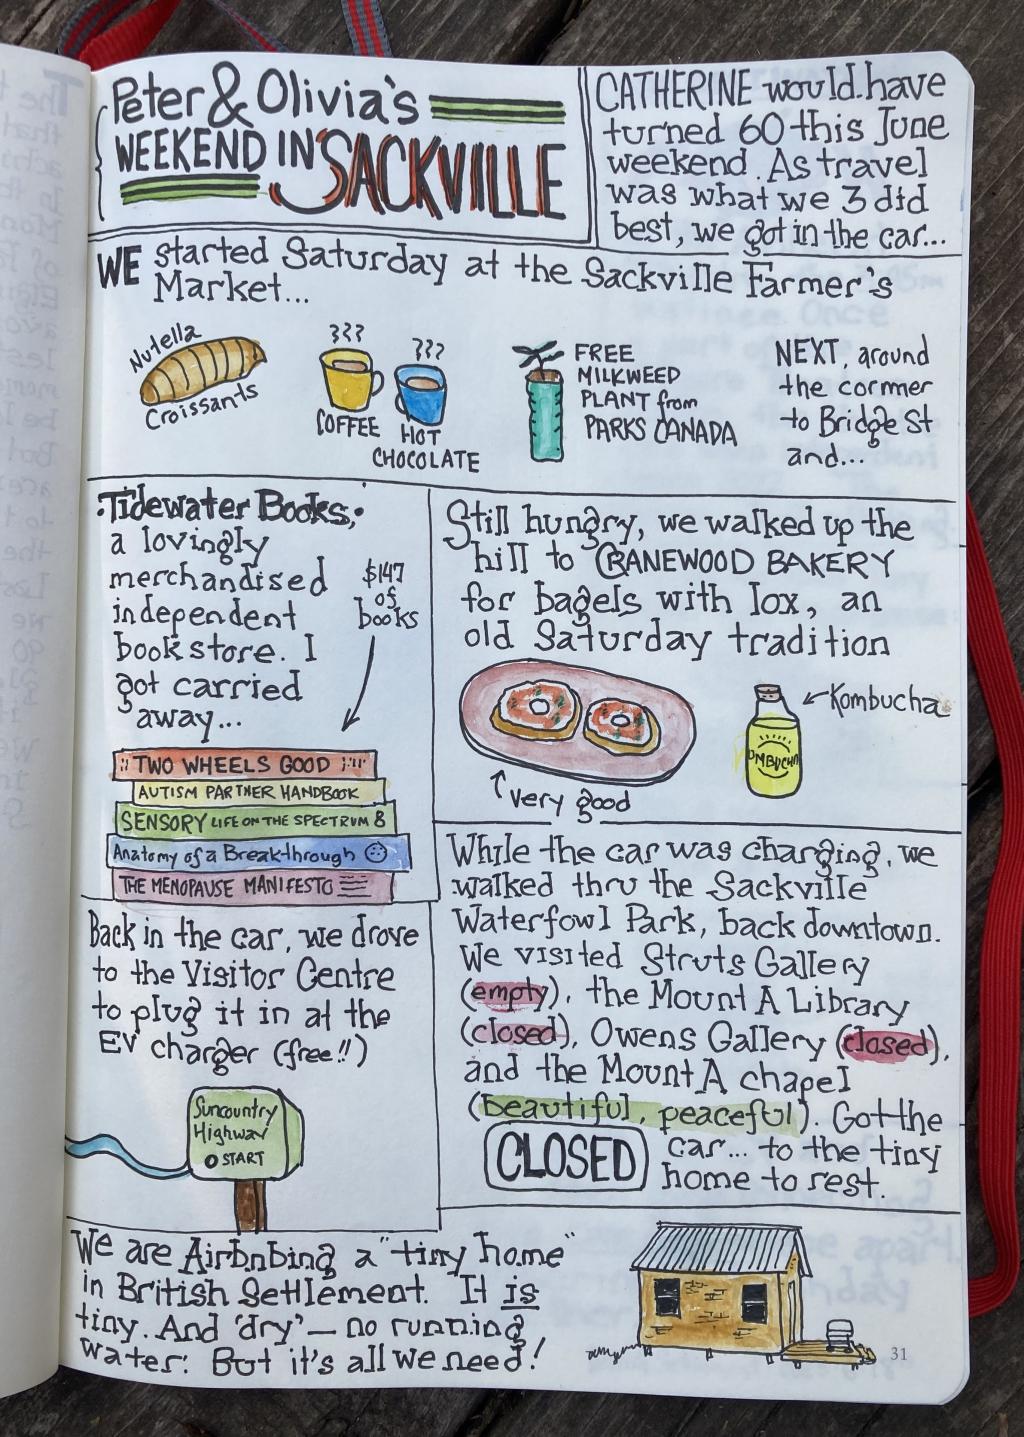 Peter & Olivia's
WEEKEND IN SACKVILLE
CATHERINE would have
turned 60 this June
weekend. As travel
was what we 3 did
best, we got in the car...
WE started Saturday at the Sackville Farmer's
Market...
Nutella
Croissants
COFFEE
HOT
CHOCOLATE
FREE
MILKWEED
PLANT from
PARKS CANADA
NEXT, around
the cormer
to Bridge St
and...
Tidewater Books,
a lovingly
merchandised
independent
bookstore. I
got carried
away...
$147
of
books
TWO WHEELS GOOD
AUTISM PARTNER HANDBOOK
SENSORY LIFE ON THE SPECTRUM 8
Anatomy of a Breakthrough
THE MENOPAUSE MANIFESTO
Still hungry, we walked up the
hill to CRANEWOOD BAKERY
for bagels with lox, an
old Saturday tradition
Kombucha
OMBUCHA
very good
Back in the car, we drove
to the Visitor Centre
to plug it in at the
EV charger (free!!)
Suncountry
Highway
START
While the car was charging, we
walked thru the Sackville
Waterfowl Park, back downtown.
We visited Struts Gallery
(empty), the Mount A Library
(closed), Owens Gallery (closed),
and the Mount A chapel
(beautiful, peaceful). Got the
car... to the tiny
home to rest.
CLOSED
We are Airbnbing a "tiny home"
in British Settlement. It is
tiny. And 'dry' — no running
water. But it's all we need!
31